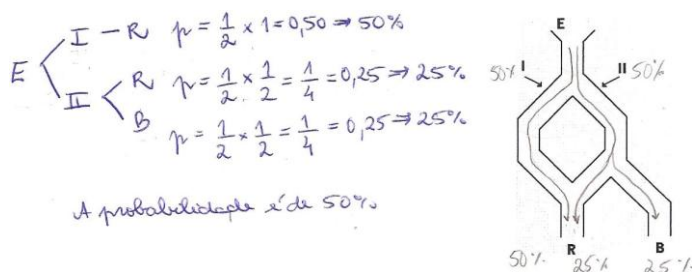 I — R p = 1/2 × 1 = 0,50 ⇒ 50%
E
II R p = 1/2 × 1/2 = 1/4 = 0,25 ⇒ 25%
B p = 1/2 × 1/2 = 1/4 = 0,25 ⇒ 25%
A probabilidade é de 50%.
E
50% I II 50%
R B
50% 25% 25%